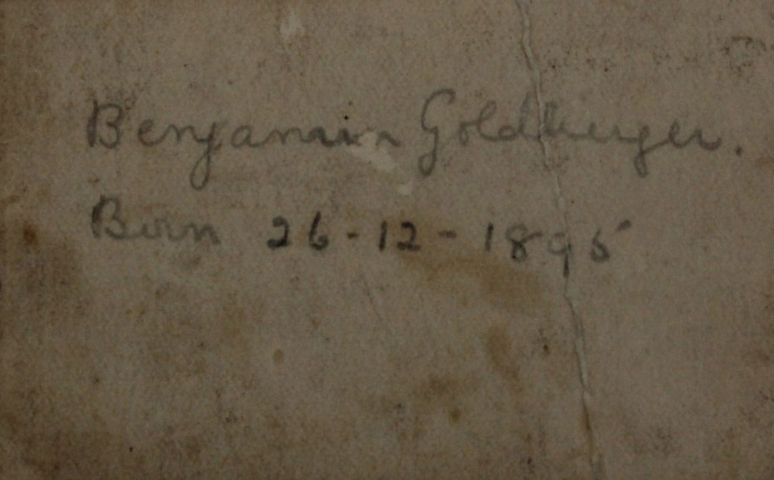 Benjamin Goldberger.
Born 26-12-1895